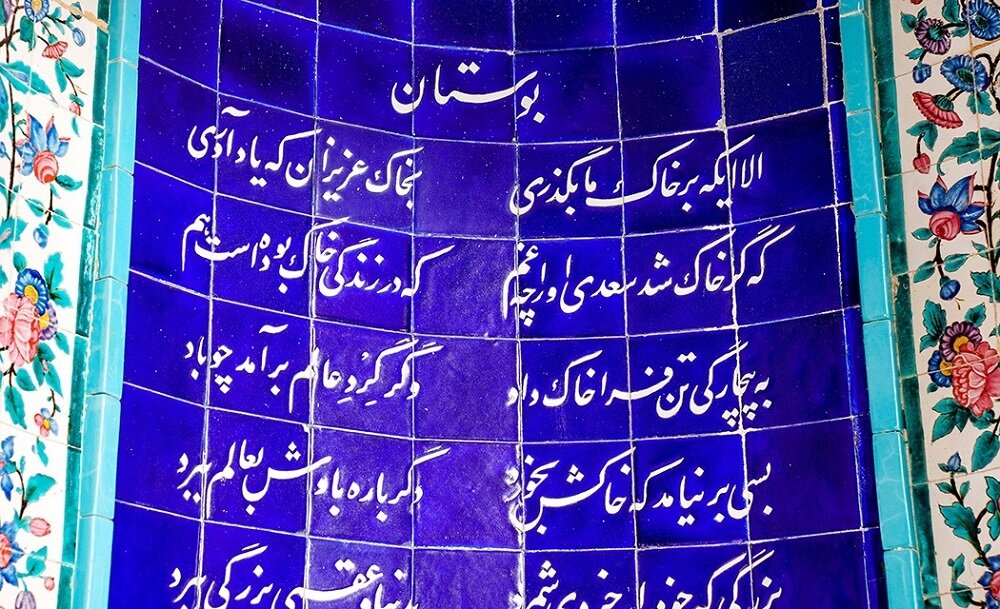 بوستان
الا ایکه بر خاک ما بگذری بخاک عزیزان که یاد آوری
که گر خاک شد سعدی او را چه غم که در زندگی خاک بوده است هم
به بیچارگی تن فرا خاک داد وگر گِردِ عالم برآمد چو باد
بسی بر نیامد که خاکش بخورد دگر باره بادش بعالم ببرد
بزرگی که خود را بزرگی ببرد